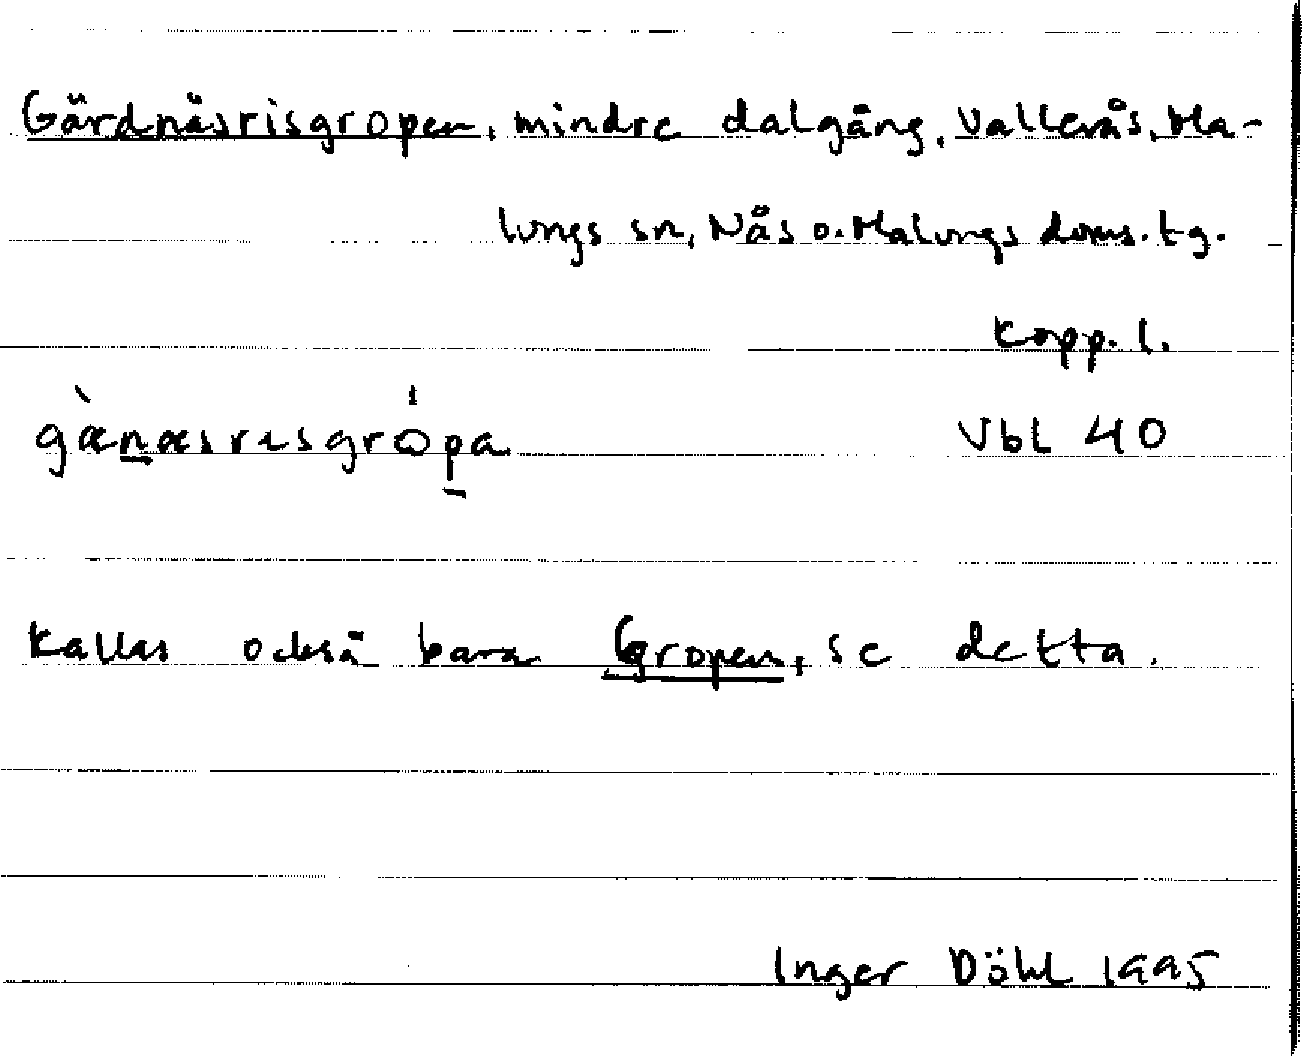 Gärdnäsrisgropen, mindre dalgång, Vallerås, Ma-
lungs sn, Nås o. Malungs doms. tg.
Kopp. l.
gæ̀n̲æsrɪsgrópa
Vbl 40
Kallas också bara Gropen, se detta.
Inger Döhl 1995